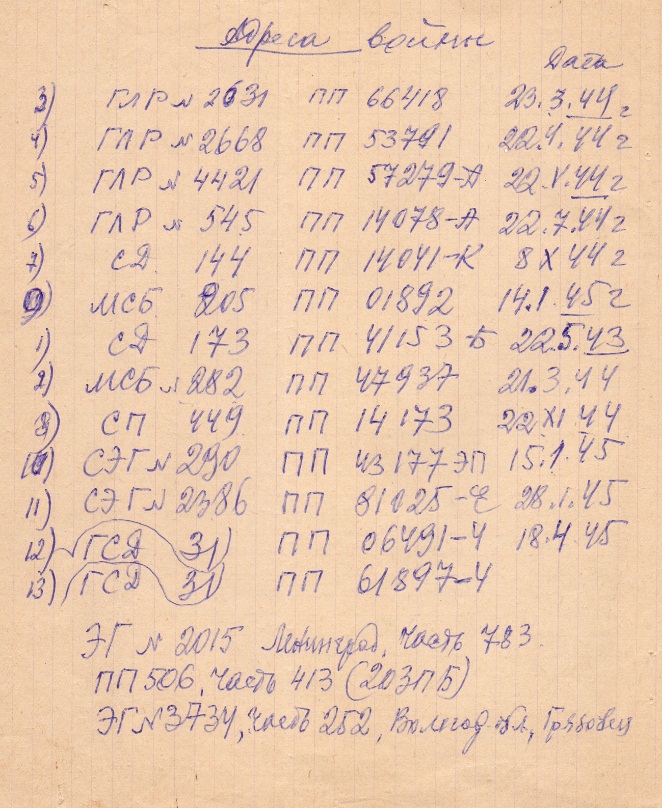 Адреса войны
Дата
3) ГЛР № 2631 ПП 66418 23.3.44 г
4) ГЛР № 2668 ПП 53791 22.4.44 г
5) ГЛР № 4421 ПП 57279-А 22.V.44 г
6) ГЛР № 545 ПП 14078-А 22.7.44 г
7) СД 144 ПП 14041-К 8 X 44 г
9) МСБ 205 ПП 01892 14.1.45 г
1) СД 173 ПП 41153 Б 22.5.43
2) МСБ № 282 ПП 47937 21.3.44
8) СП 449 ПП 14173 22 XI.44
10) СЭГ № 290 ПП 43177 ЭП 15.1.45
11) СЭГ № 2386 ПП 81025- 28.1.45
12) ГСД 31) ПП 06491-Ч 18.4.45
13) ГСД 31) ПП 61897-Ч
ЭГ № 2015 Ленинград, часть 783.
ПП 506, часть 413 (203ПБ)
ЭГ № 3734, часть 252, Вологод обл, Грязовец